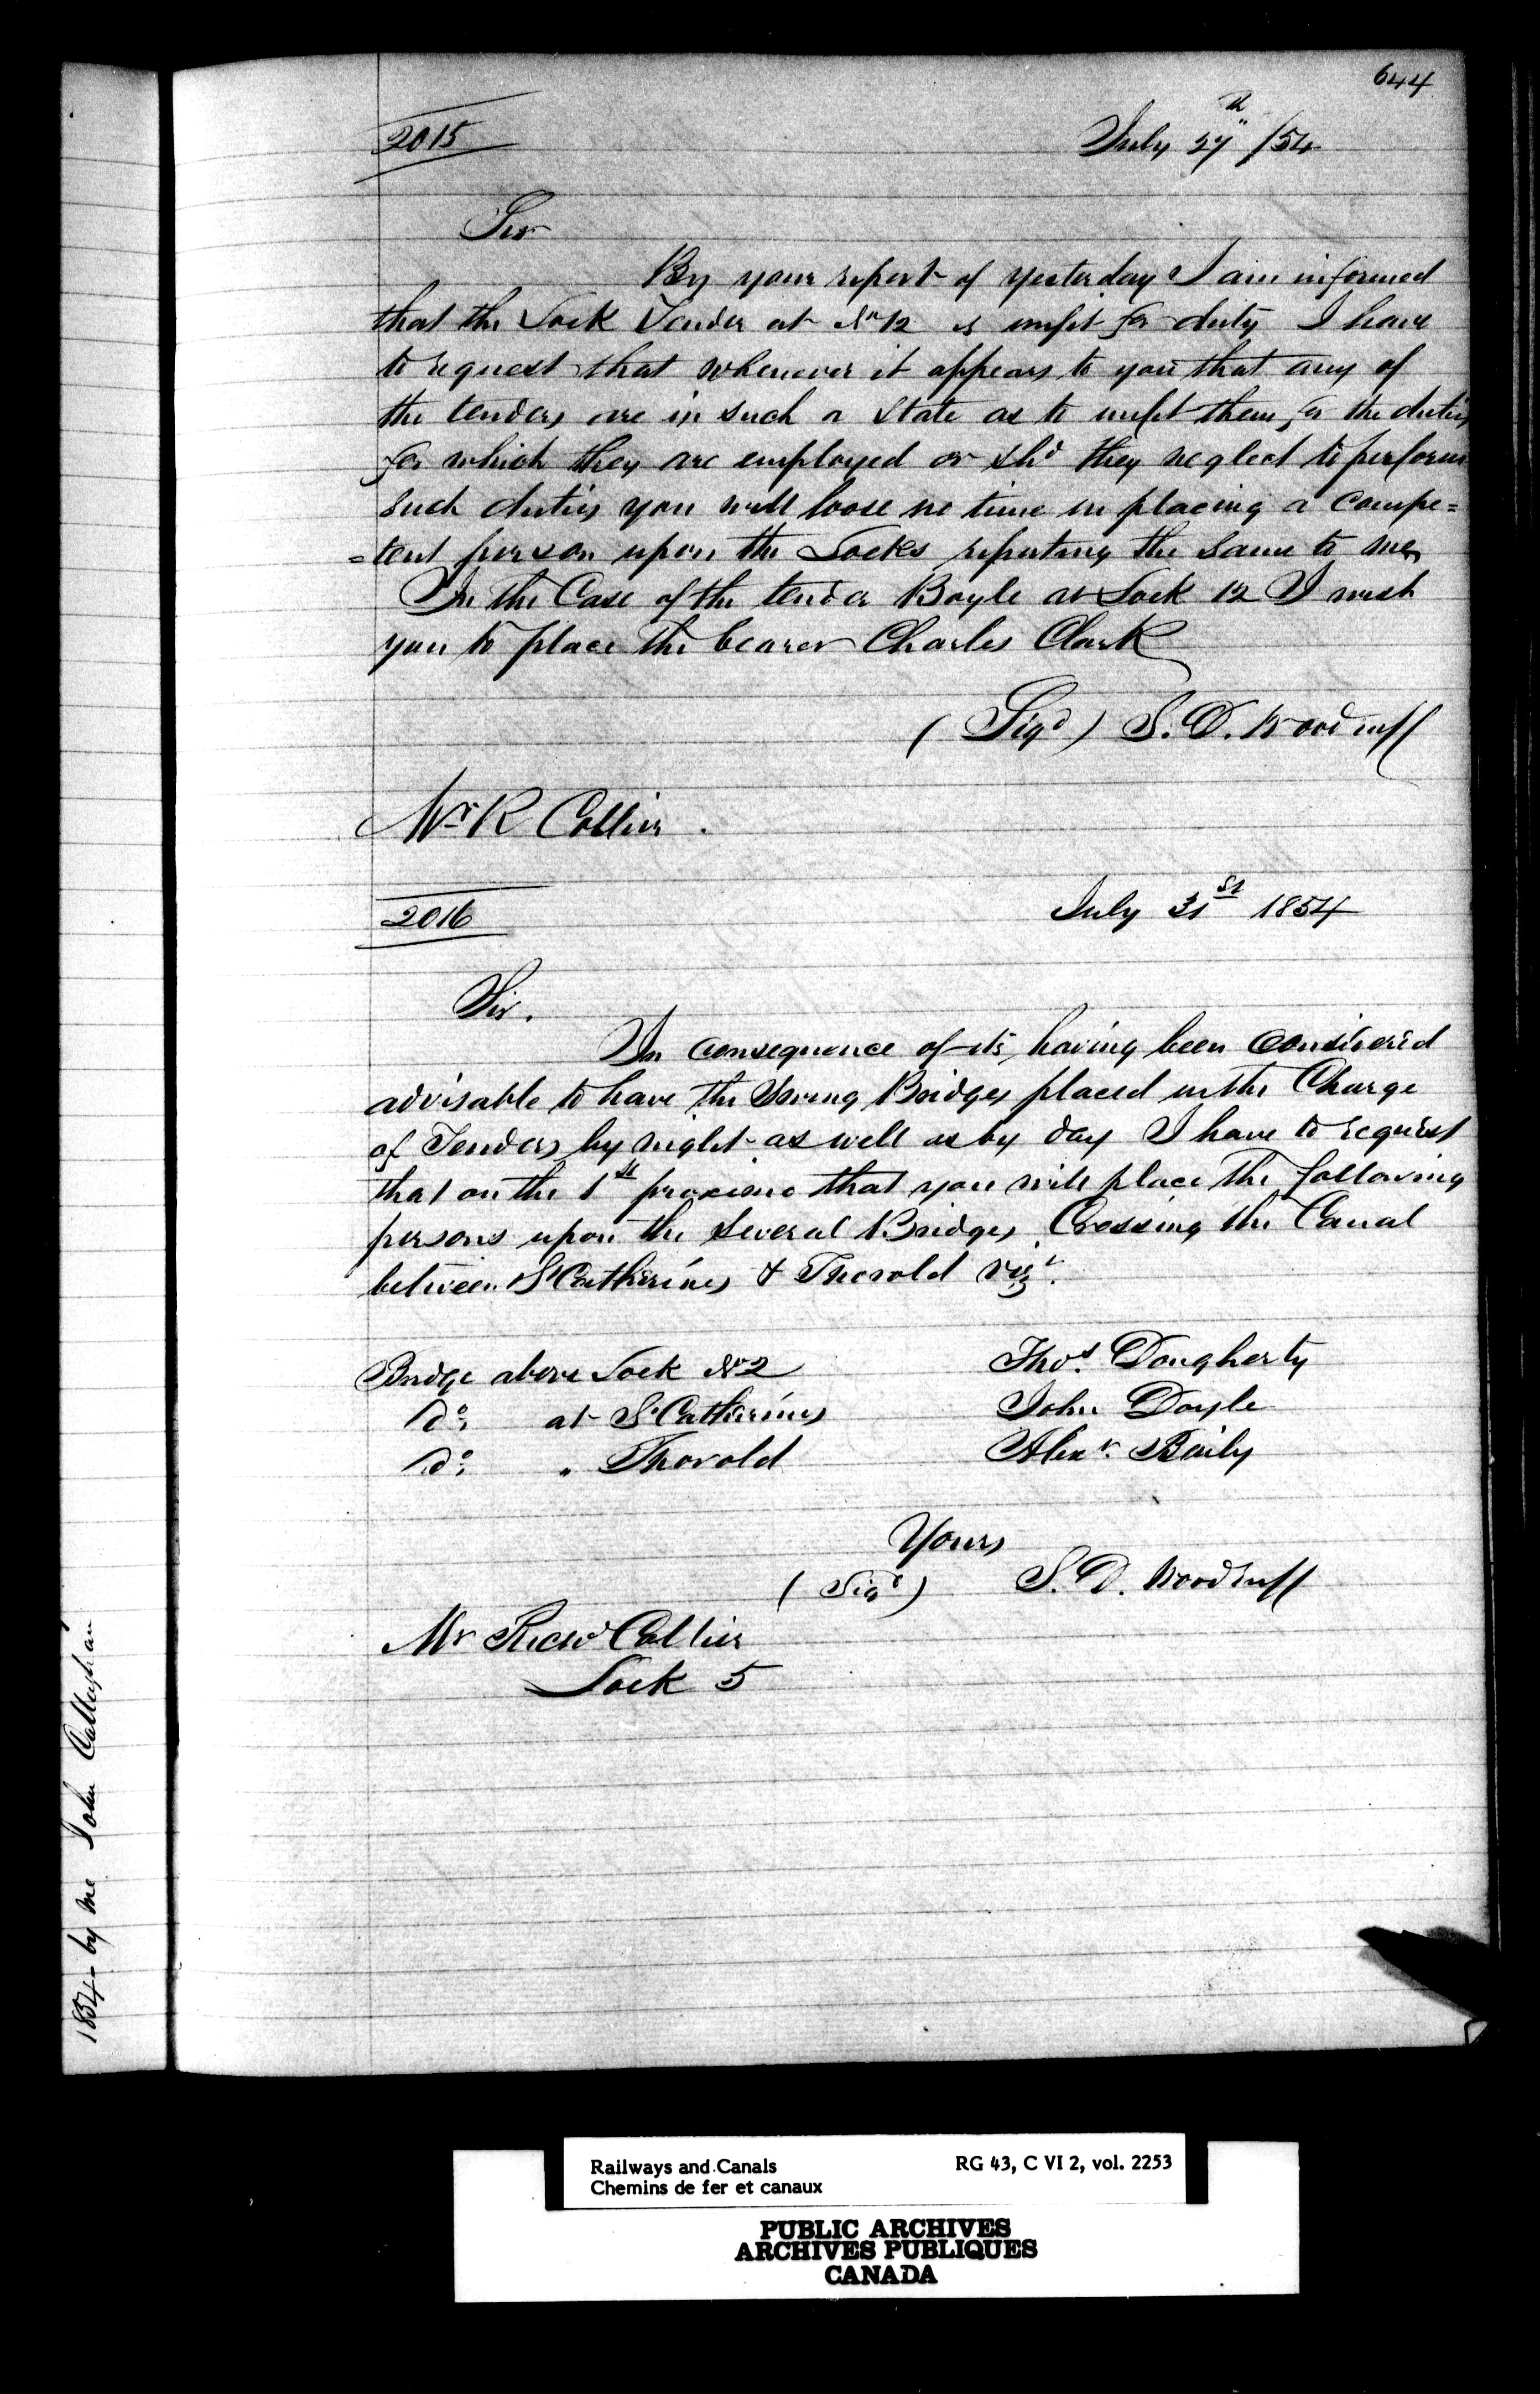 644
2015
July 27th /54
Sir
By your report of yesterday I am informed
that the Lock Tender at No 12 is unfit for duty I have
to request that whenever it appears to you that any of
the tenders are in such a state as to unfit them for the duties
for which they are employed or shd they neglect to perform
such duties you will loose no time in placing a compe=
=tent person upon the Locks reporting the same to me
In the Case of the tender Boyle at Lock 12 I wish
you to place the bearer Charles Clark
(Sigd) S. D. Woodruff
Mr R Collier.
2016
July 31st 1854
Sir.
In consequence of its having been considered
advisable to have the Swing Bridges placed in the Charge
of Tenders by night as well as by day I have to request
that on the 1st proximo that you will place the following
persons upon the several Bridges Crossing the Canal
between St Catherines & Thorold vizt.
Bridge above Lock No 2 Thos. Dougherty
do. at St Catherines John Doyle
do. " Thorold Alexr. Baily
Yours
(Sigd) S. D. Woodruff
Mr Richd Collier
Lock 5
1854 - by me John Callaghan
Railways and Canals RG 43, C VI 2, vol. 2253
Chemins de fer et canaux
PUBLIC ARCHIVES
ARCHIVES PUBLIQUES
CANADA